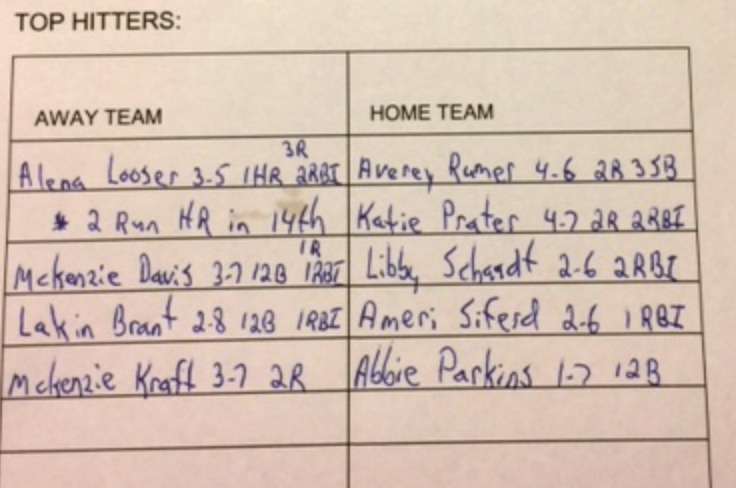 TOP HITTERS:
AWAY TEAM
HOME TEAM
3R
Alena Looser 3-5 1HR 2RBI
Averey Rumer 4-6 2R 3SB
* 2 Run HR in 14th
Katie Prater 4-7 2R 2RBI
1R
Mckenzie Davis 3-7 12B 1RBI
Libby Schaadt 2-6 2RBI
Lakin Brant 2-8 12B 1RBI
Ameri Siferd 2-6 1RBI
Mckenzie Kraft 3-7 2R
Abbie Parkins 1-7 12B